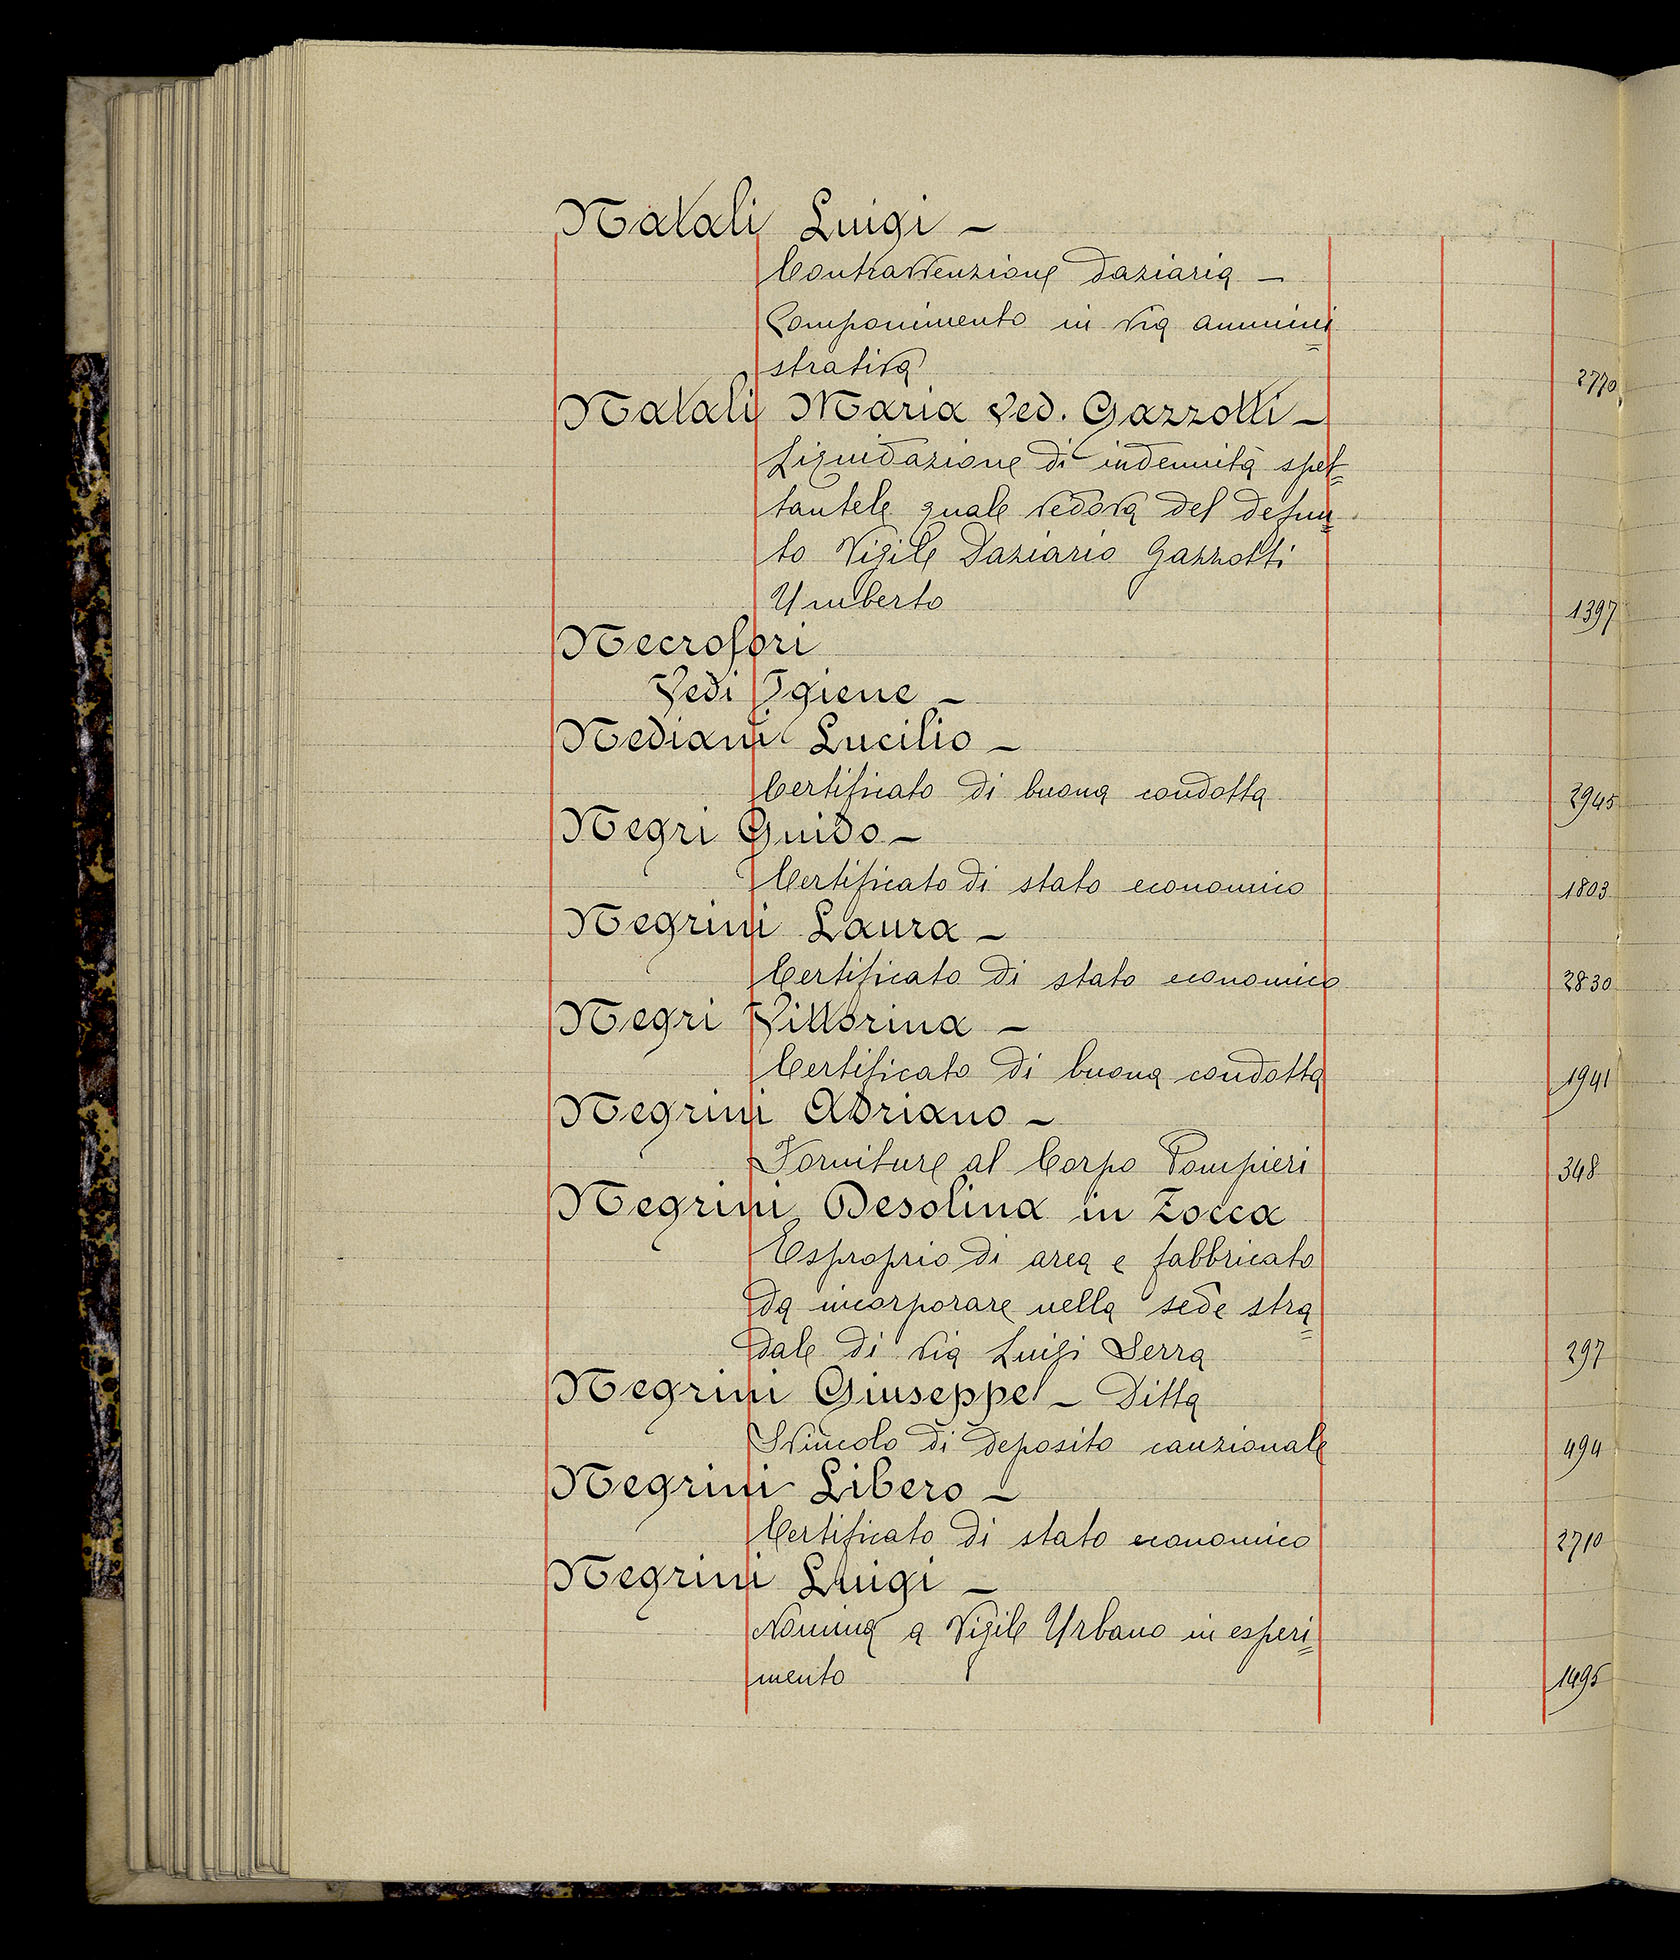 Natali Luigi –
Contravvenzione daziaria –
Componimento in via ammini=
strativa 2770
Natali Maria Ved. Gazzotti –
Liquidazione di indennità spet=
tantele quale vedova del defun=
to Vigile Daziario Gazzotti
Umberto 1397
Necrofori
Vedi Igiene –
Nediani Lucilio –
Certificato di buona condotta 2945
Negri Guido –
Certificato di stato economico 1803
Negrini Laura –
Certificato di stato economico 2830
Negri Vittorina –
Certificato di buona condotta 1941
Negrini Adriano –
Forniture al Corpo Pompieri 348
Negrini Desolina in Zocca
Esproprio di area e fabbricato
da incorporare nella sede stra=
dale di via Luigi Serra 297
Negrini Giuseppe – Ditta
Svincolo di deposito cauzionale 494
Negrini Libero –
Certificato di stato economico 2710
Negrini Luigi –
Nomina a Vigile Urbano in esperi=
mento 1495